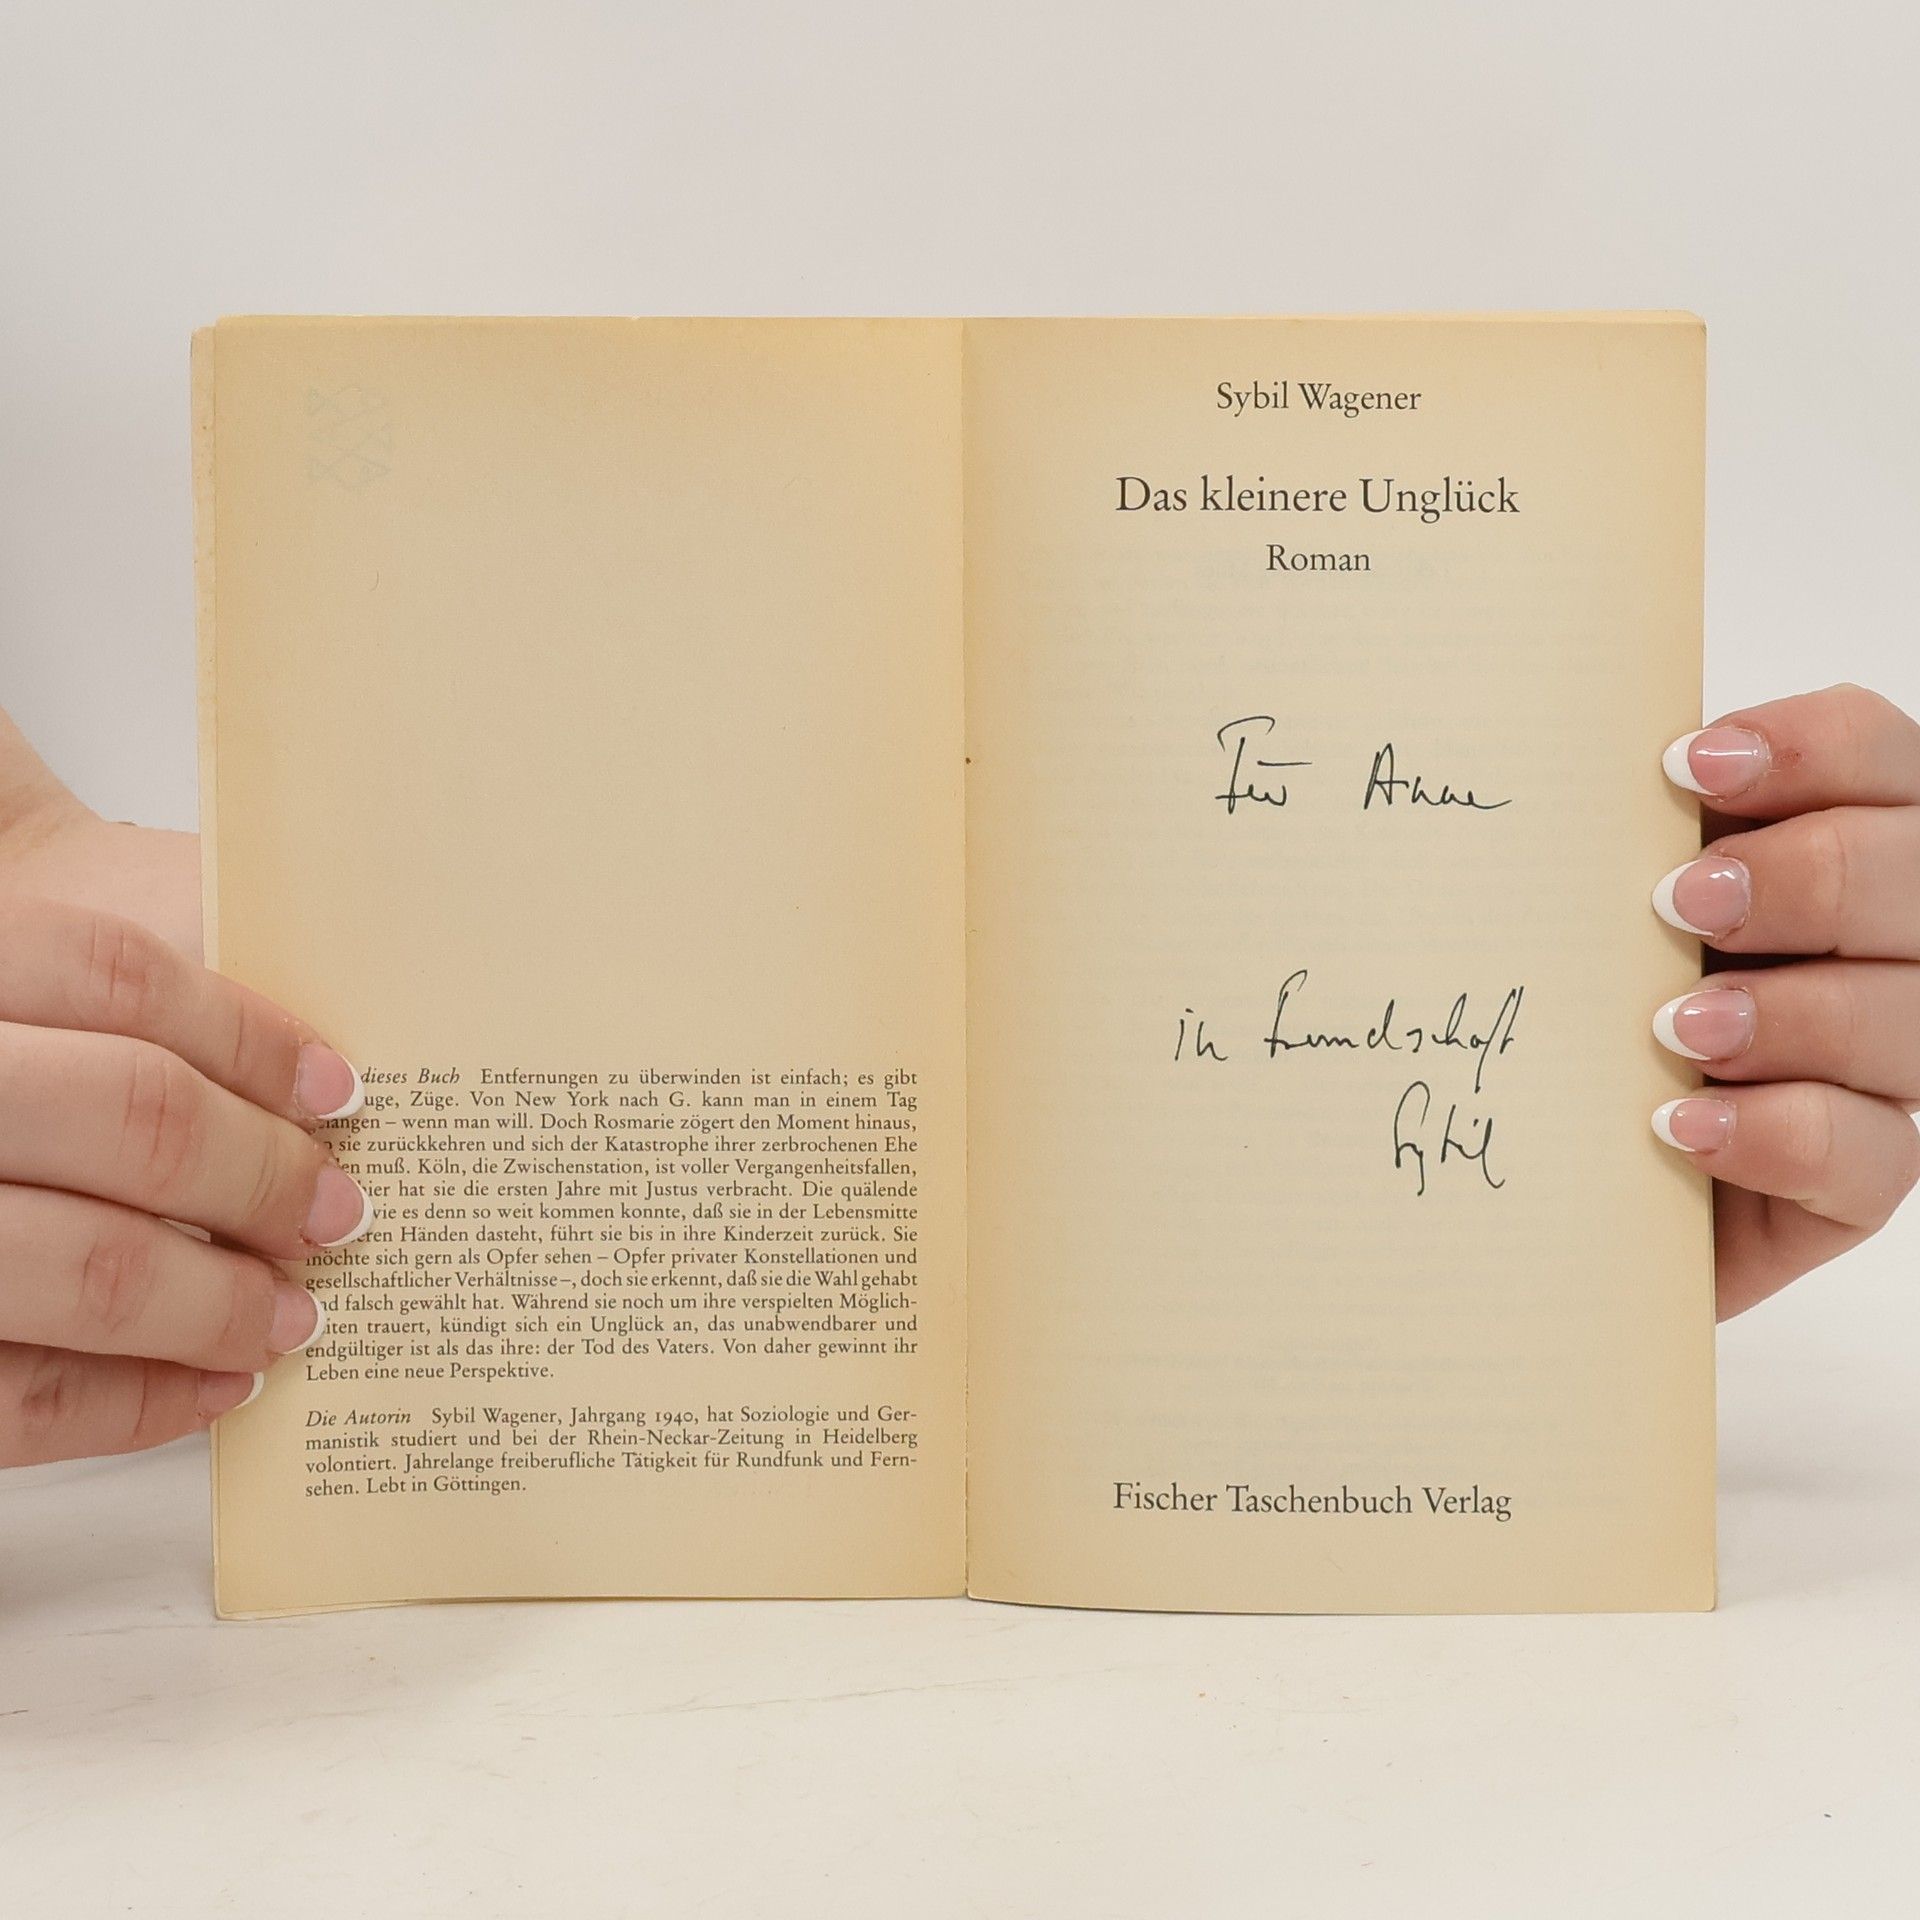 dieses Buch Entfernungen zu überwinden ist einfach; es gibt
uge, Züge. Von New York nach G. kann man in einem Tag
gelangen – wenn man will. Doch Rosmarie zögert den Moment hinaus,
sie zurückkehren und sich der Katastrophe ihrer zerbrochenen Ehe
muß. Köln, die Zwischenstation, ist voller Vergangenheitsfallen,
hier hat sie die ersten Jahre mit Justus verbracht. Die quälende
wie es denn so weit kommen konnte, daß sie in der Lebensmitte
Händen dasteht, führt sie bis in ihre Kinderzeit zurück. Sie
möchte sich gern als Opfer sehen – Opfer privater Konstellationen und
gesellschaftlicher Verhältnisse –, doch sie erkennt, daß sie die Wahl gehabt
und falsch gewählt hat. Während sie noch um ihre verspielten Möglich-
keiten trauert, kündigt sich ein Unglück an, das unabwendbarer und
endgültiger ist als das ihre: der Tod des Vaters. Von daher gewinnt ihr
Leben eine neue Perspektive.
Die Autorin Sybil Wagener, Jahrgang 1940, hat Soziologie und Ger-
manistik studiert und bei der Rhein-Neckar-Zeitung in Heidelberg
volontiert. Jahrelange freiberufliche Tätigkeit für Rundfunk und Fern-
sehen. Lebt in Göttingen.
Sybil Wagener
Das kleinere Unglück
Roman
Für Anne
in Freundschaft
Sybil
Fischer Taschenbuch Verlag